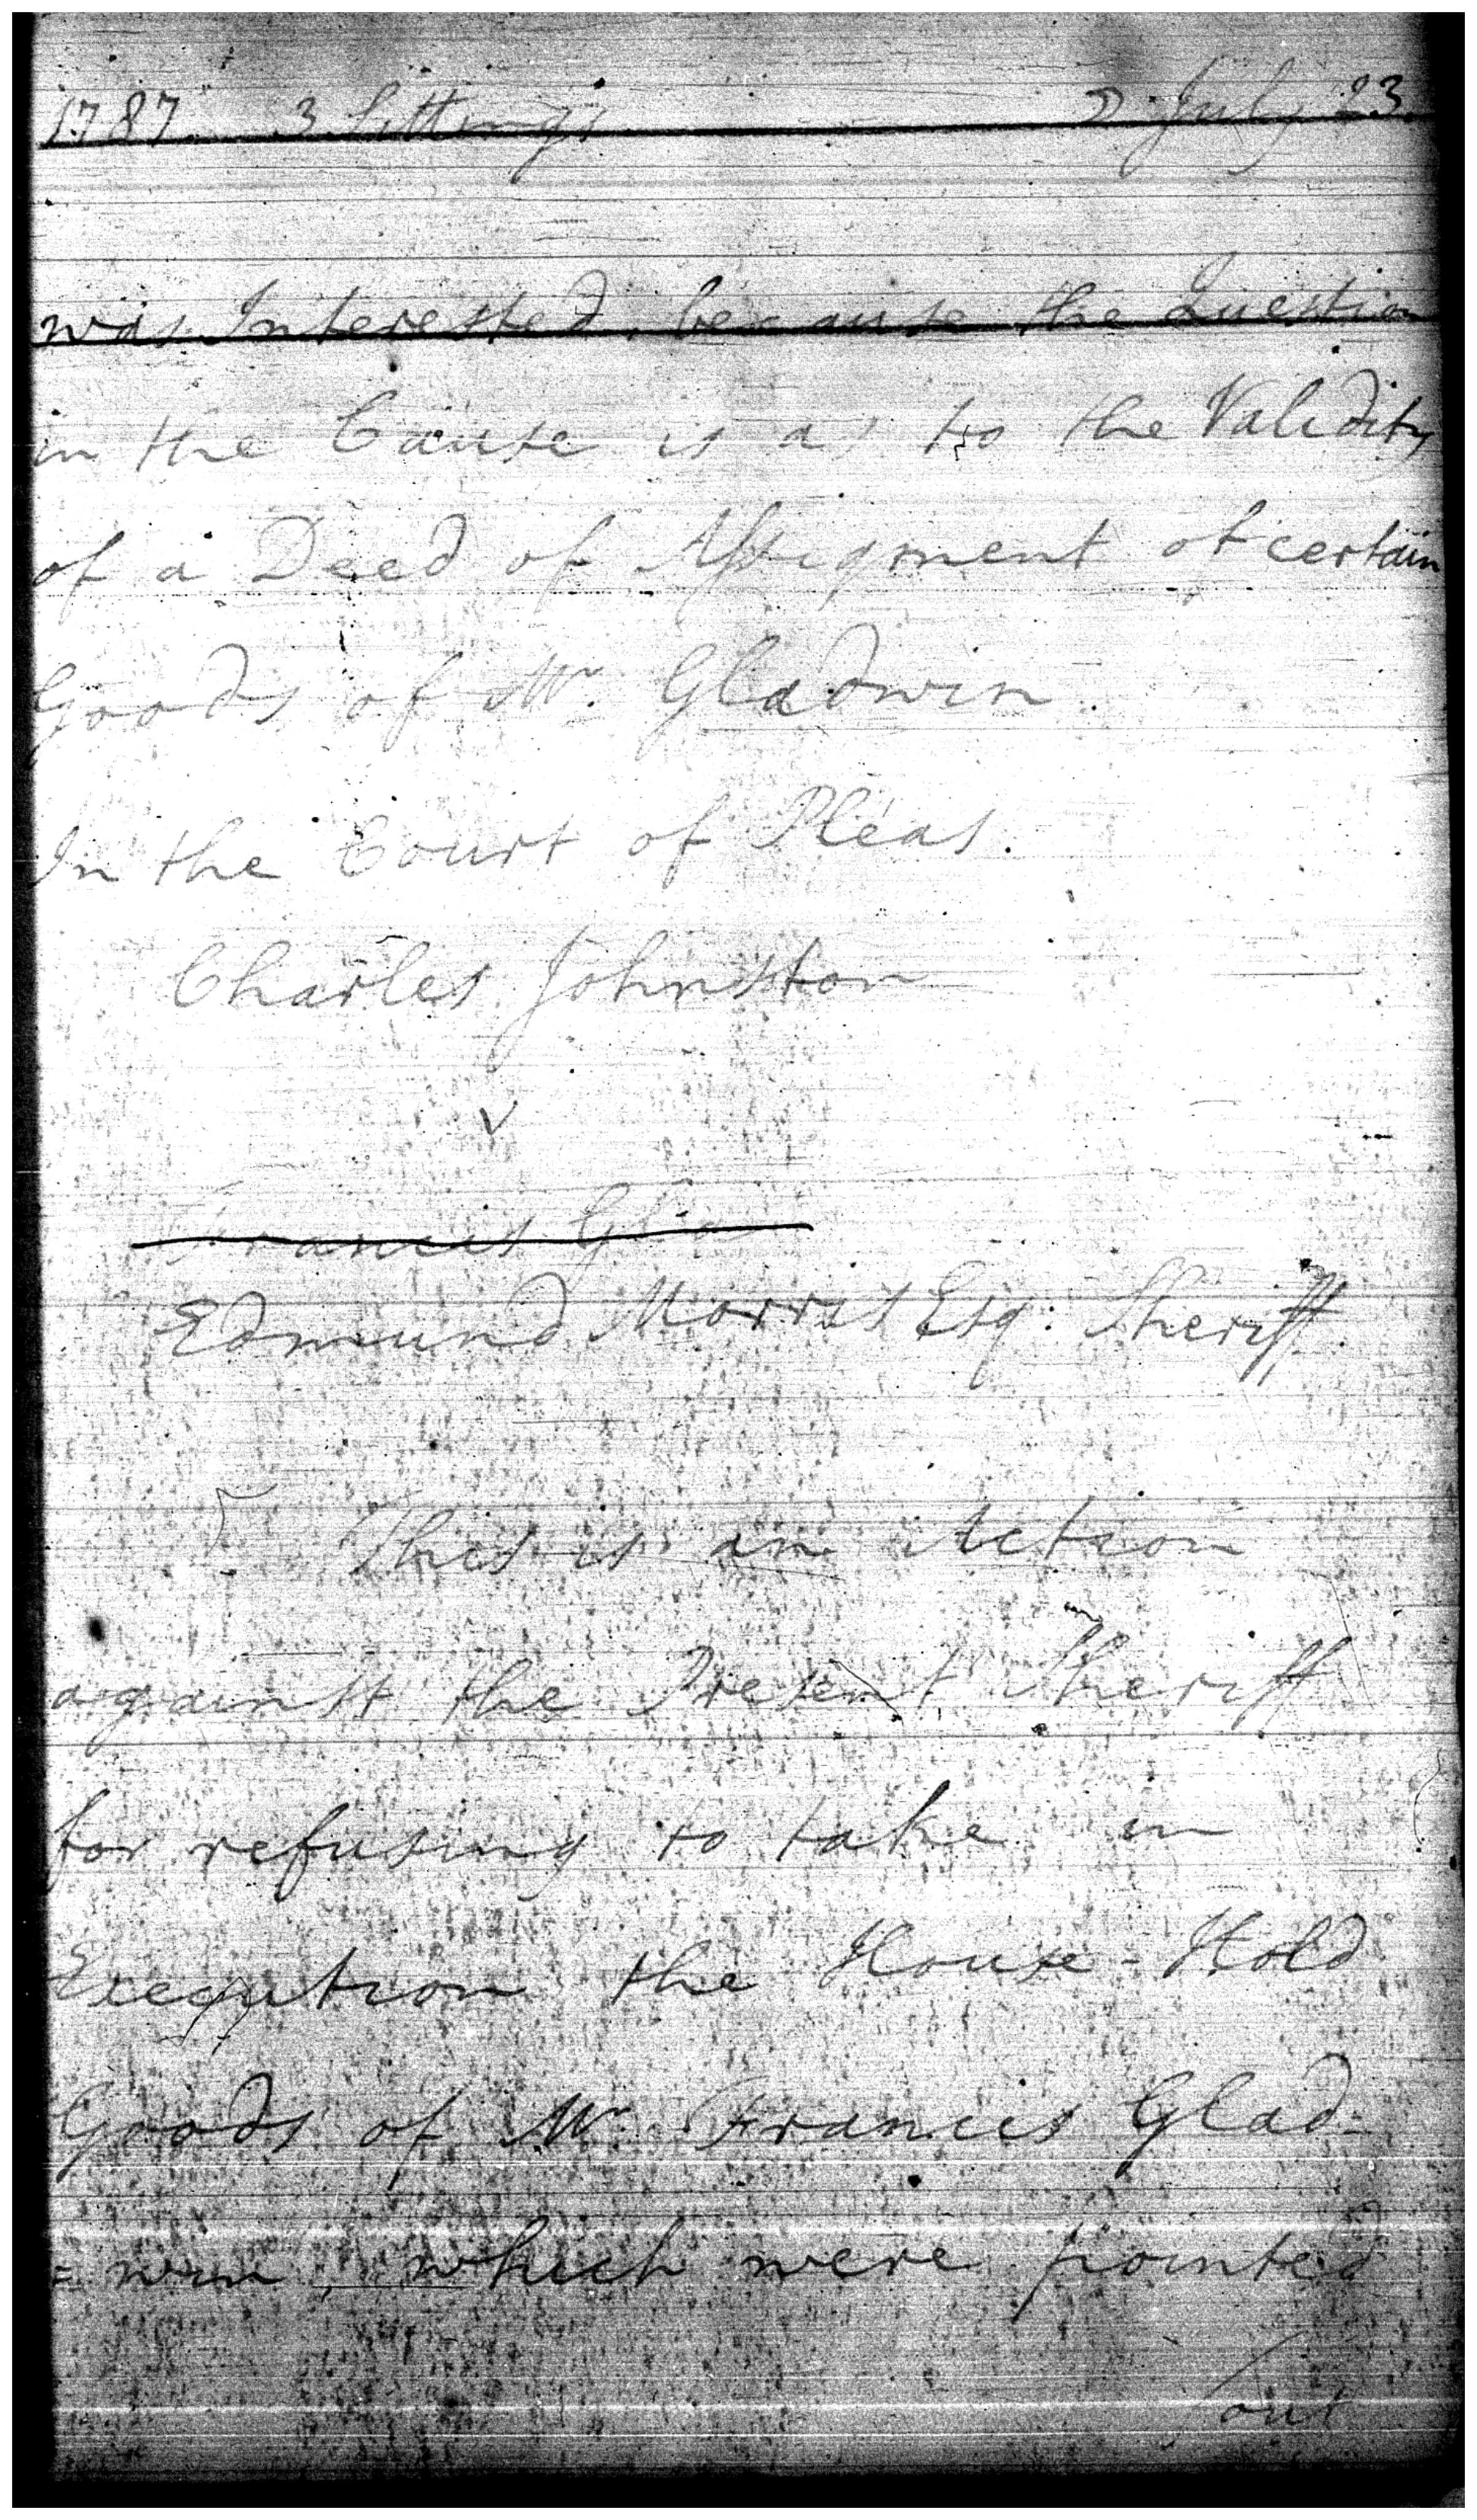 1787. 3 Sittings ☽ July 23.
was Interested, because the Question
in the Cause is as to the Validity
of a Deed of Assignment of certain
Goods of Mr. Gladwin.
In the Court of Pleas.
Charles Johnston
v
Francis Gla
Edmund Morris Esq: Sheriff.
This is an Action
against the Present Sheriff
for refusing to take in
Execution the House-Hold
Goods of Mr. Francis Glad-
=win, which were pointed
out